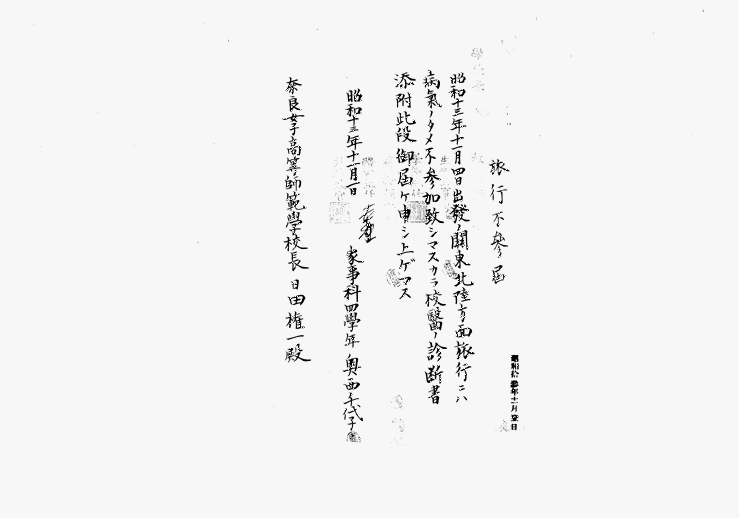 旅行不參届
昭和十三年十一月四日出發ノ關東北陸方面旅行ニハ
病氣ノタメ不参加致シマスカラ校醫ノ診断書
添附此段御届ケ申シ上ゲマス
昭和十三年十一月一日
家事科四學年 奥西千代子
奈良女子高等師範學校長 日田権一殿
昭和拾參年十一月壹日